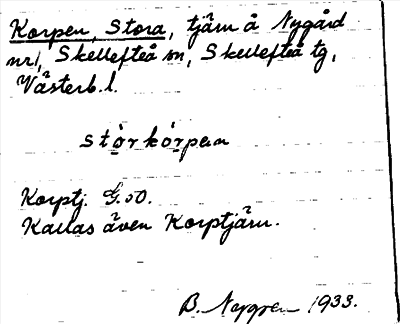 Korpen, Stora, tjärn å Nygård
nr 1, Skellefteå sn, Skellefteå tg,
Västerb. l.
stòrkórpen
Korptj. G.50.
Kallas även Korptjärn.
B. Nygren 1933.